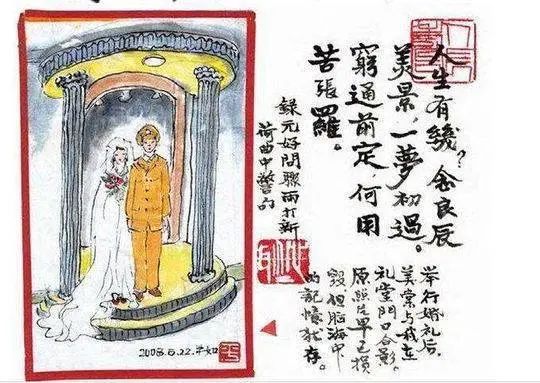 人生有幾？念良辰
美景，一夢初過。
窮通前定，何用
苦張羅。
錄元好問驟雨打新
荷曲中警句
舉行婚礼后，
美棠与我在
礼堂門口合影。
原照片早已損
毀但脑海中
的記憶猶存。
2008.6.22.平如